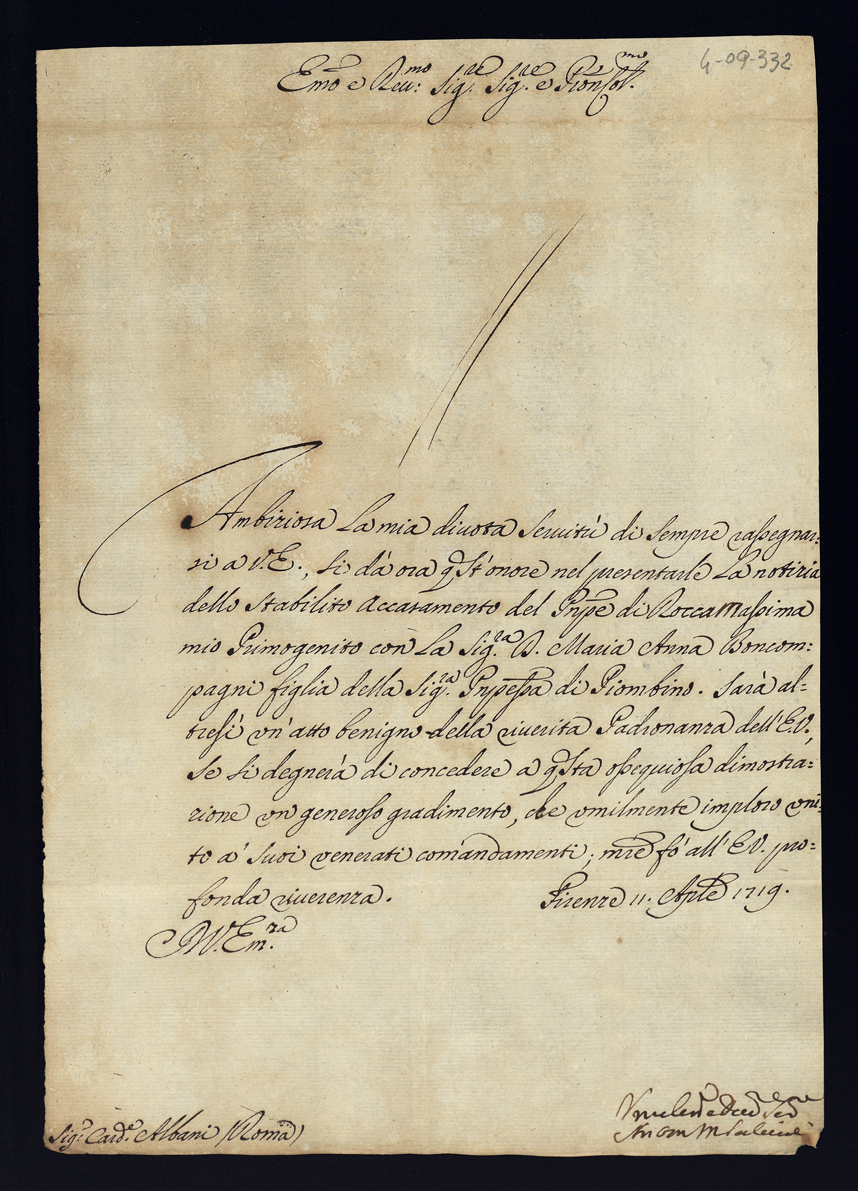 4-09-332
Emo e Reu:mo Sig.re Sig.re e Pron Col.mo
Ambiziosa La mia diuota Seruitù di Sempre rassegnar:
si a V.E., Si dà ora qst'onore nel presentarle La notizia
dello Stabilito Accasamento del Prnpe di Roccamassima
mio Primogenito con La Sig.ra D. Maria Anna Boncom:
pagni figlia della Sig.ra Prnpessa di Piombino. Sarà al=
tresì vn'atto benigno della riuerita Padronanza dell'E.V.,
Se Si degnerà di concedere a qsta ossequiosa dimostra:
zione vn generoso gradimento, che vmilmente imploro vni:
to a' Suoi venerati comandamenti; mre fò all'E.V. pro=
fonda riuerenza. Firenze 11. Aple 1719.
D V. Em.za
Sig.r Card.e Albani (Roma)